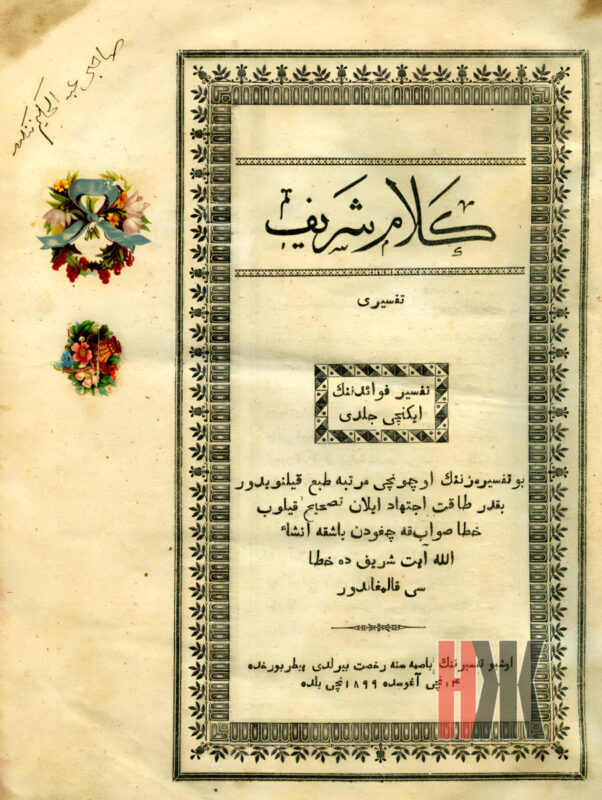 صاحبی عبد الحکیم ننکم
کلام شریف
تفسیری
تفسیر فوائدننك
ایکنچی جلدی
بو تفسیرمزننك اوچونچی مرتبه طبع قیلنویدور
بقدر طاقت اجتهاد ایلان تصحیح قیلوب
خطا صواب‌قه چغودن باشقه انشاء
الله آیت شریف ده خطا
سی قالمغاندور
اوشبو تفسیرننك باصمه سنه رخصت بیرلدی پیطربورخده
۴نچی آغوسده ۱۸۹۹نچی یلده
НЖ